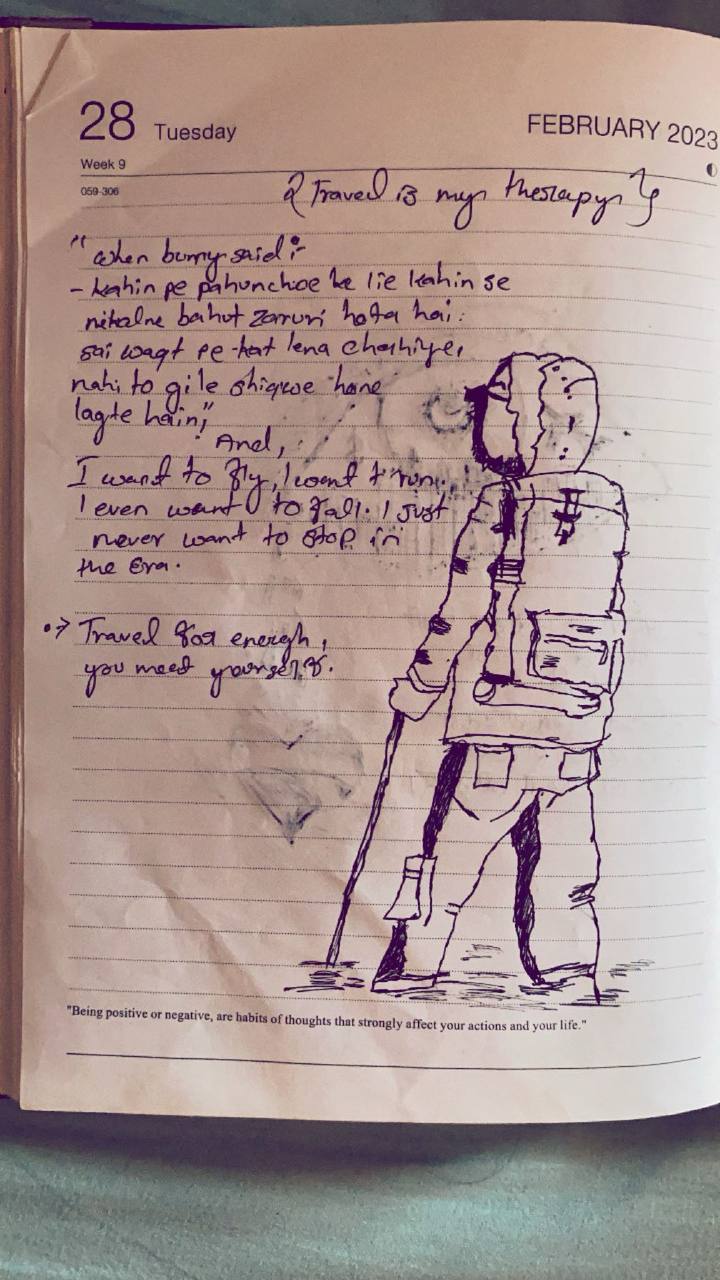 28 Tuesday
FEBRUARY 2023
Week 9
059-306
{ Travel is my therapy }
"when bunny said :-
- kahin pe pahunchne ke lie kahin se
nikalne bahut zaruri hota hai.
sai waqt pe kat lena chahiye,
nahi to gile shiqwe hone
lagte hain,"
And,
I want to fly, I want t run.
I even want to fall. I Just
never want to stop in
the Era.
•> Travel for energh,
you meet yourself.
"Being positive or negative, are habits of thoughts that strongly affect your actions and your life."